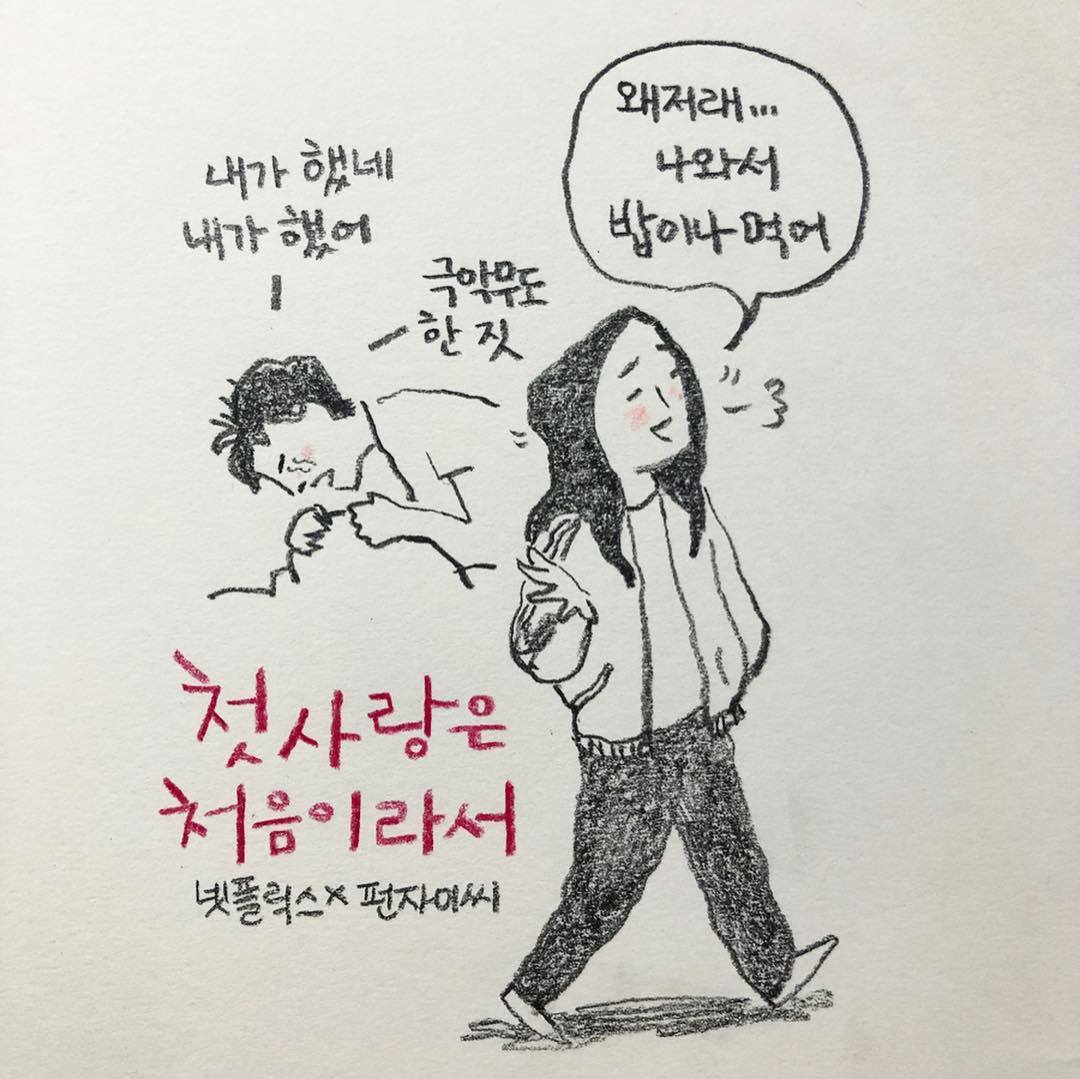 내가 했네
내가 했어
극악무도
한 짓
왜저래...
나와서
밥이나 먹어
첫사랑은
처음이라서
넷플릭스 x 펀자이씨